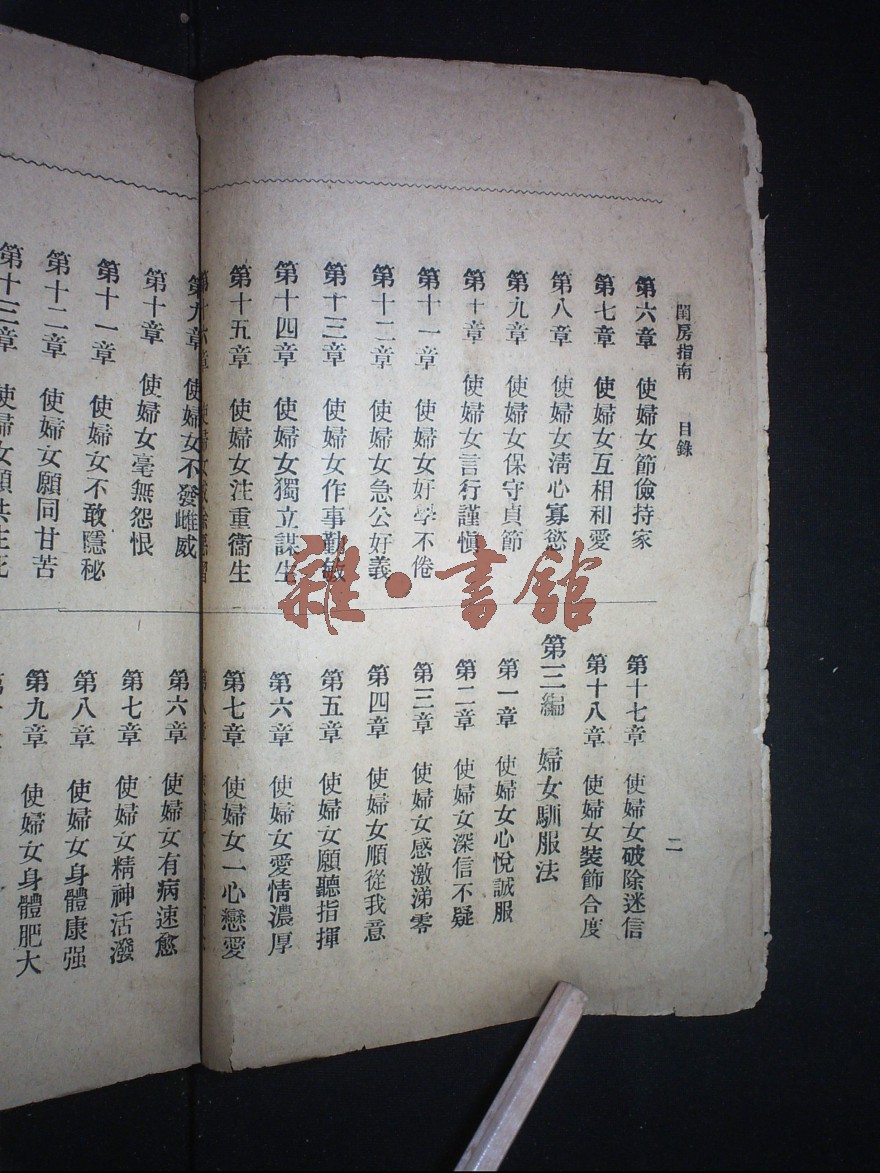 閨房指南　目錄　二
第六章　使婦女節儉持家
第七章　使婦女互相和愛
第八章　使婦女淸心寡慾
第九章　使婦女保守貞節
第十章　使婦女言行謹愼
第十一章　使婦女好學不倦
第十二章　使婦女急公好義
第十三章　使婦女作事勤敏
第十四章　使婦女獨立謀生
第十五章　使婦女注重衞生
第十六章　使婦女戒除惡習
第十七章　使婦女破除迷信
第十八章　使婦女裝飾合度
第三編　婦女馴服法
第一章　使婦女心悅誠服
第二章　使婦女深信不疑
第三章　使婦女感激涕零
第四章　使婦女順從我意
第五章　使婦女願聽指揮
第六章　使婦女愛情濃厚
第七章　使婦女一心戀愛
第八章
第九章　使婦女不發雌威
第十章　使婦女毫無怨恨
第十一章　使婦女不敢隱秘
第十二章　使婦女願同甘苦
第十三章　使婦女願共生死
第六章　使婦女有病速愈
第七章　使婦女精神活潑
第八章　使婦女身體康强
第九章　使婦女身體肥大
雜·書館